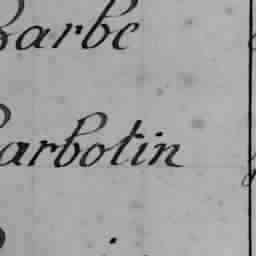 Barbe
Barbotin